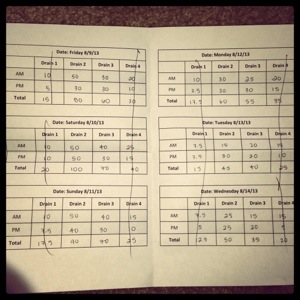 Date: Friday 8/9/13
Drain 1 Drain 2 Drain 3 Drain 4
AM 10 50 30 20
PM 5 30 30 10
Total 15 80 60 30
Date: Saturday 8/10/13
Drain 1 Drain 2 Drain 3 Drain 4
AM 10 50 40 25
PM 10 50 30 15
Total 20 100 40
Date: Sunday 8/11/13
Drain 1 Drain 2 Drain 3 Drain 4
AM 10 50 40 15
PM 7.5 40 30 10
Total 17.5 90 70 25
Date: Monday 8/12/13
Drain 1 Drain 2 Drain 3 Drain 4
AM 10 30 25 20
PM 7.5 30 30 15
Total 17.5 60 55 35
Date: Tuesday 8/13/13
Drain 1 Drain 2 Drain 3 Drain 4
AM 7.5 15 20 15
PM 7.5 30 20 10
Total 15 45 40 25
Date: Wednesday 8/14/13
Drain 1 Drain 2 Drain 3 Drain 4
AM 7.5 25 15 15
PM 5 25 20 5
Total 12.5 50 35 20